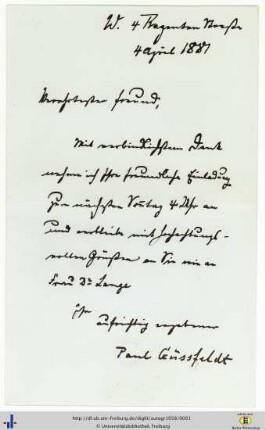 W. 4 Regenten Strasse
4 April 1881
Verehrtester Freund,
Mit verbindlichstem Dank
nehme ich Ihre freundliche Einladung
zum nächsten Sontag 4 Uhr an
und verbleibe mit hochachtungs-
vollen Grüßen an Sie wie an
Frau Dr Lange
Ihr
aufrichtig ergebener
Paul Güssfeldt
http://dl.ub.uni-freiburg.de/diglit/autogr1018/0001
© Universitätsbibliothek Freiburg